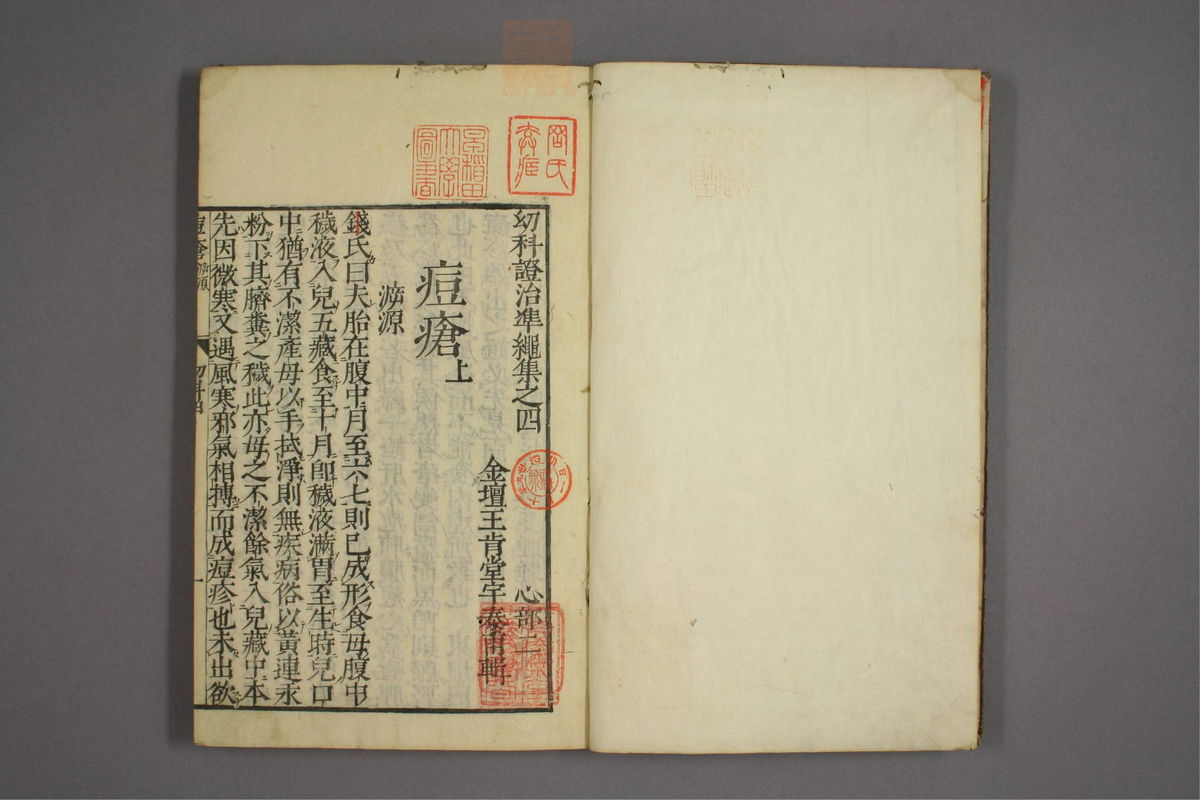 幼科證治準繩集之四
心部二
金壇王肯堂宇泰甫輯
痘瘡上
溯源
錢氏曰夫胎在腹中月至六七則已成形食母腹中
穢液入兒五藏食至十月即穢液滿胃至生時兒口
中猶有不潔產母以手拭淨則無疾病俗以黃連汞
粉下其臍糞之穢此亦母之不潔餘氣入兒藏中本
先因微寒又遇風寒邪氣相搏而成痘疹也未出欲
早稲田
大學
圖書